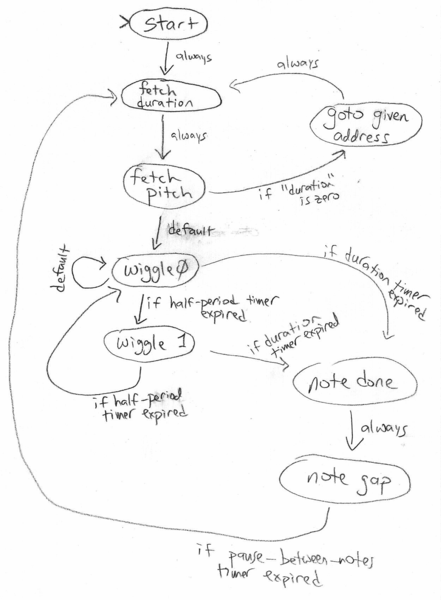 start
always
always
fetch
duration
goto given
address
always
fetch
pitch
if "duration"
is zero
default
default
wiggle0
if duration timer
expired
if half-period timer
expired
wiggle 1
if duration
timer expired
note done
if half-period
timer expired
always
note gap
if pause-between-notes
timer expired